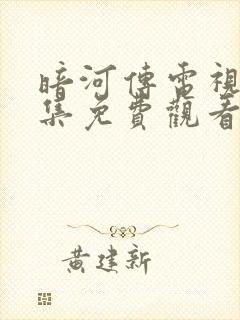 暗河傳電視
集免費觀看
黃建新